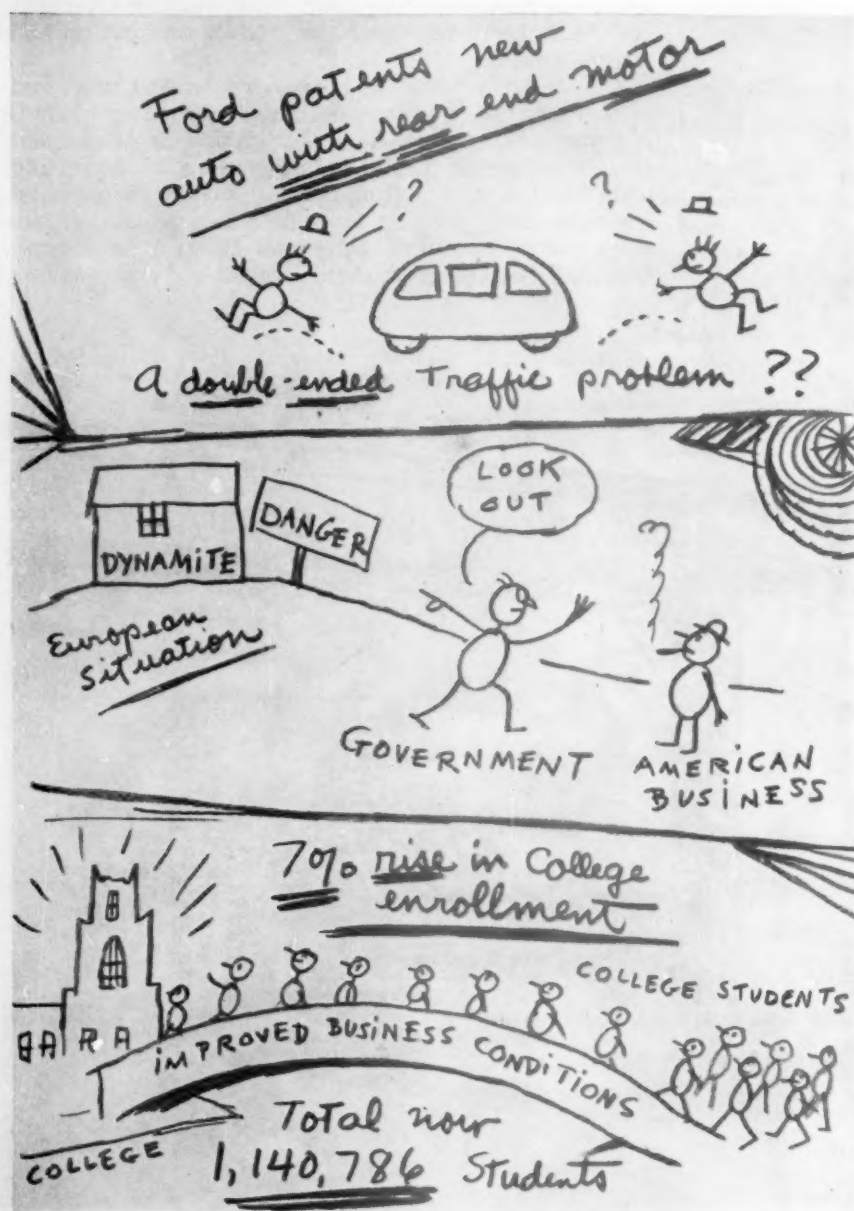 Ford patents new
auto with rear end motor
? ?
A double-ended Traffic problem ??
LOOK
OUT
DANGER
DYNAMITE
European
Situation
GOVERNMENT
AMERICAN
BUSINESS
7% rise in College
enrollment
COLLEGE STUDENTS
IMPROVED BUSINESS CONDITIONS
COLLEGE
Total now
1,140,786 Students